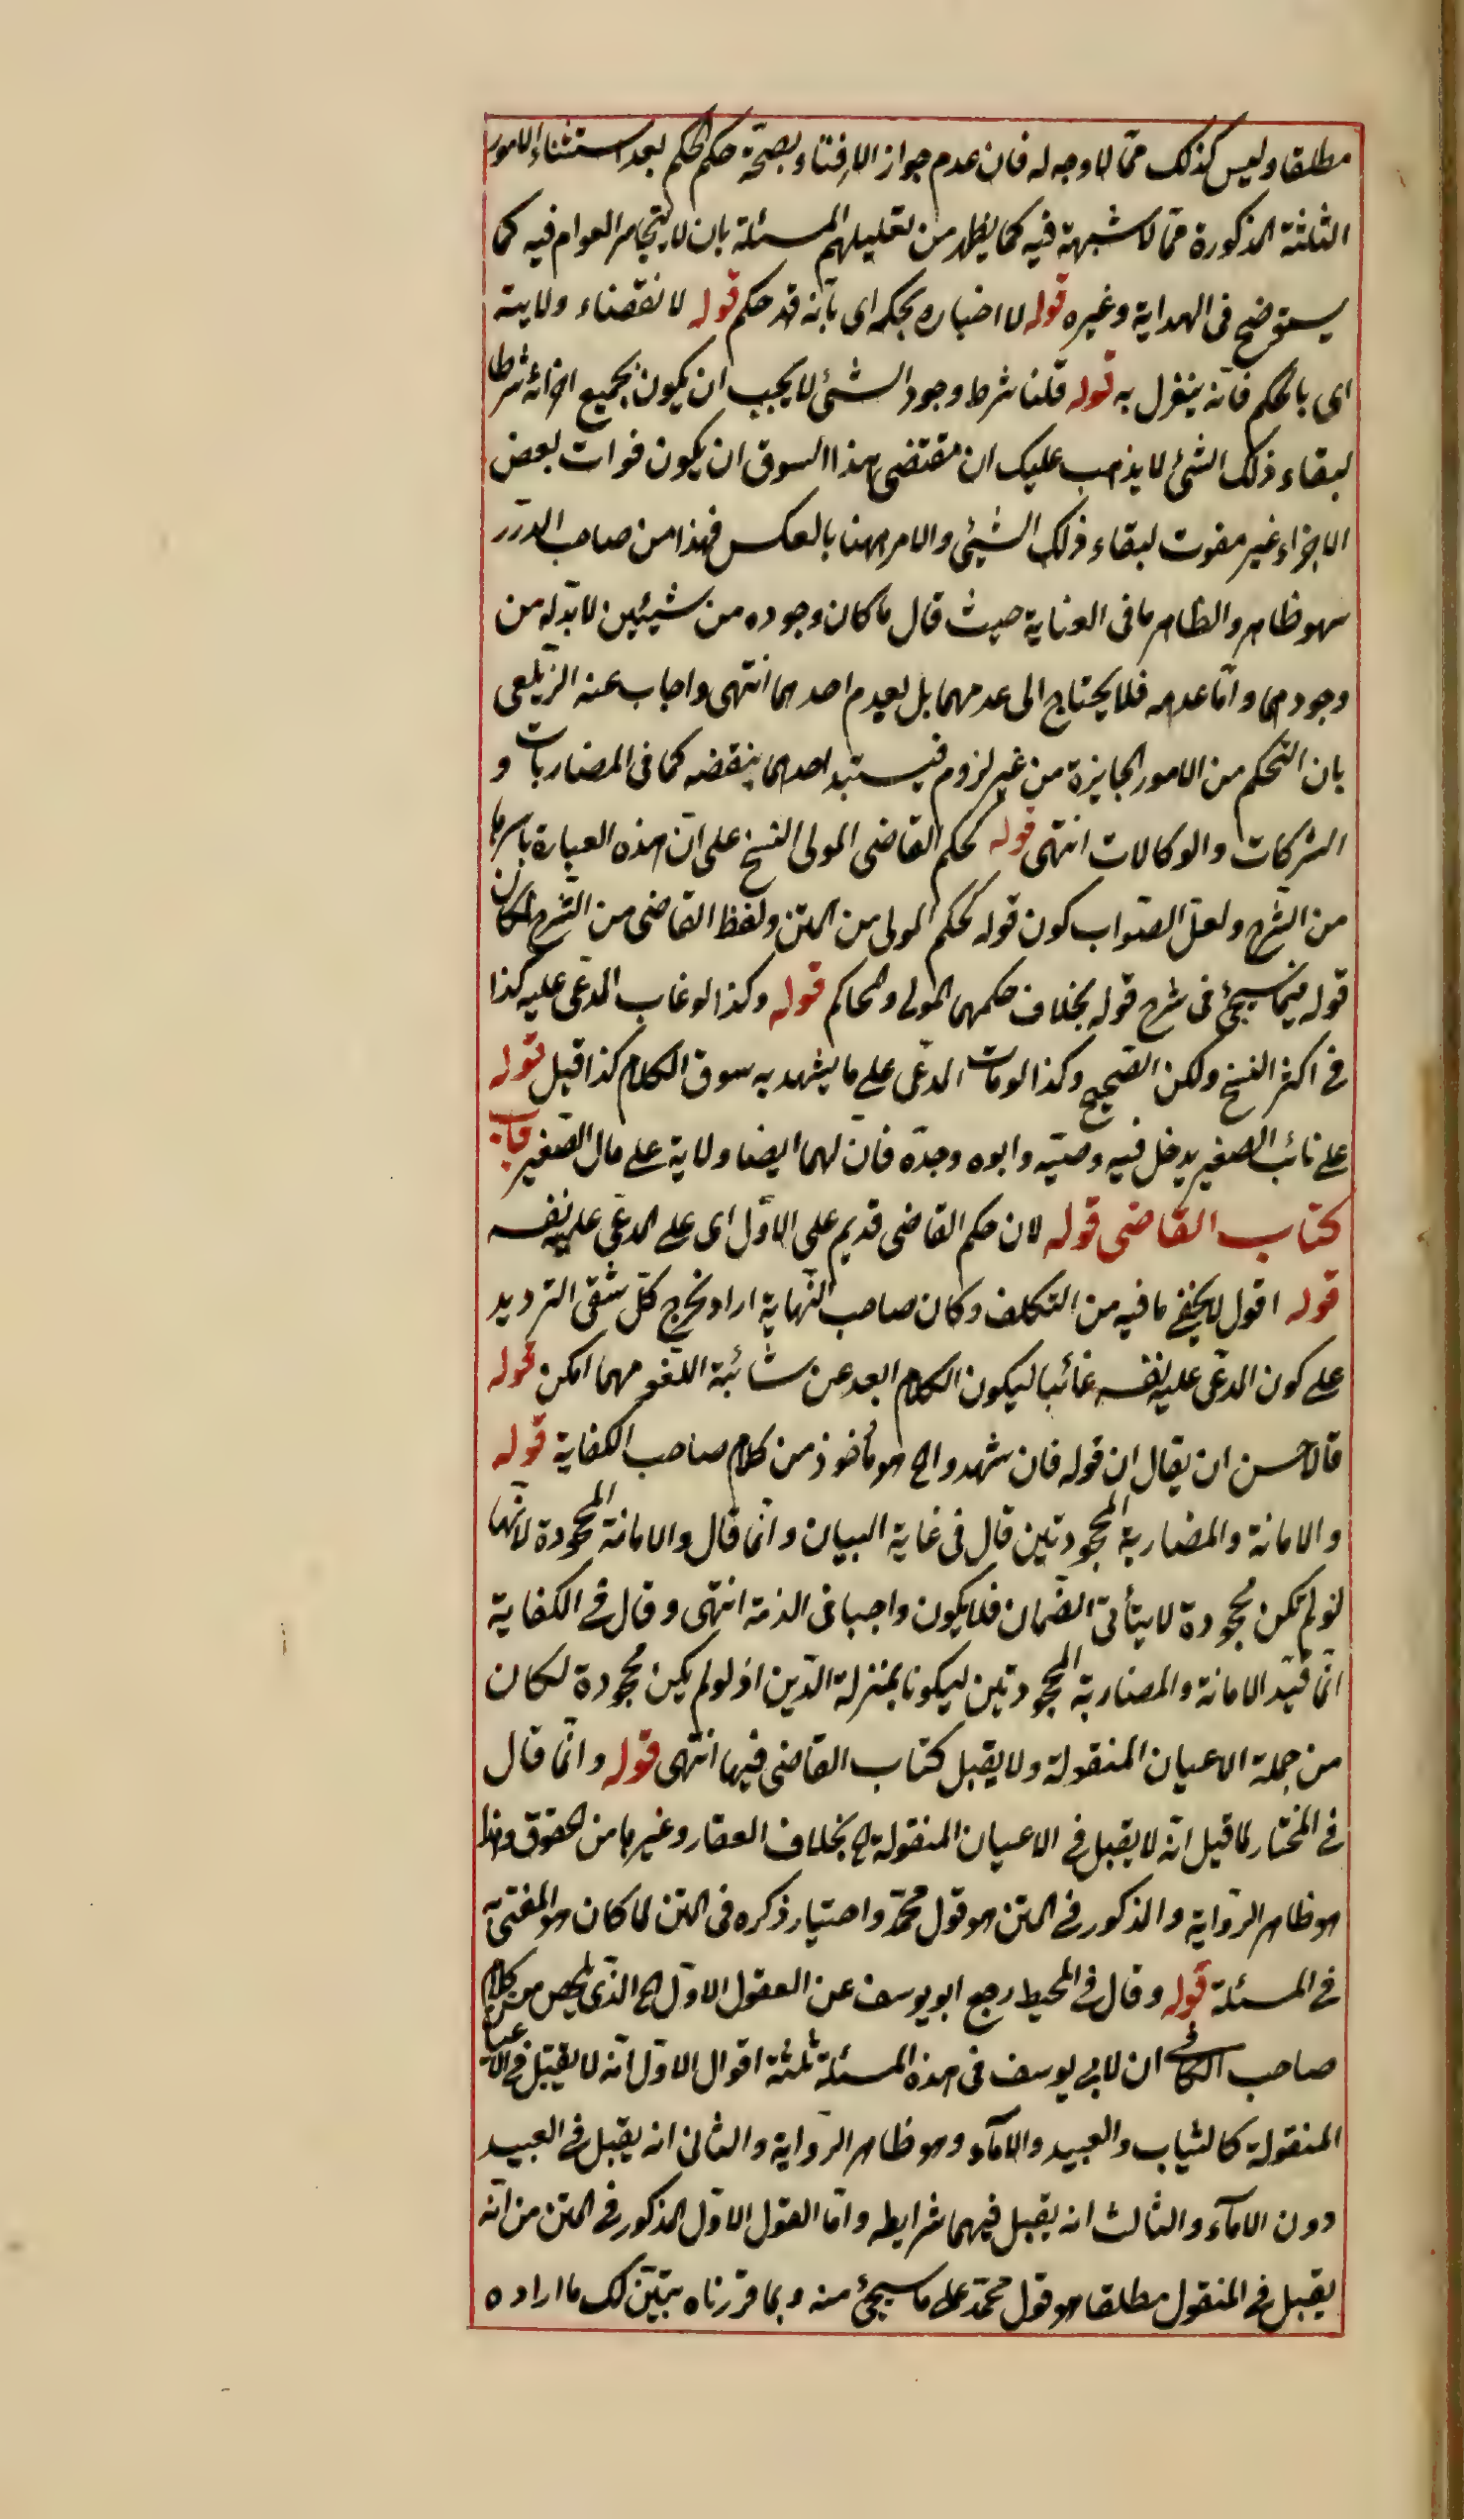 مطلقا وليس كذلك ممّا لا وجه له فان عدم جواز الافتاء وبصحّة حكم الحكم بعد استثناء الامور
الثلثة المذكورة ممّا لا شبهة فيه كما يظهر من تعليلهم المسئلة بان لا يتجاسر العوام فيه كما
يستوضح فى الهداية وغيره قوله لا اخباره بحكمه اى بانّه قد حكم قوله لانقضاء ولايته
اى بالحكم فانّه ينعزل به قوله قلنا شرط وجود الشئ لا يجب ان يكون بجميع اجزائه شرطا
لبقاء ذلك الشئ لا يذهب عليك ان مقتضى هذا السوق ان يكون فوات بعض
الاجزاء غير مفوت لبقاء ذلك الشيئ والامر ههنا بالعكس فهذا من صاحب الدرر
سهو ظاهر والظاهر ما فى العناية حيث قال ما كان وجوده من شيئين لا بدّ له من
وجودهما وامّا عدمه فلا يحتاج الى عدمهما بل يعدم احدهما انتهى واجاب عنه الزيلعى
بان التحكم من الامور الجايزة من غير لزوم فيستبد احدهما بنقضه كما فى المضاربات و
الشركات والوكالات انتهى قوله كحكم القاضى المولى النسخ على انّ هذه العبارة باسرها
من الشرح ولعلّ الصّواب كون قوله كحكم المولى من المتن ولفظ القاضى من الشرح لمكان
قوله فيما سيجئ فى شرح قوله بخلاف حكمهما المولى والحاكم قوله وكذا لو غاب المدّعى عليه كذا
فى اكثر النسخ ولكن الصّحيح وكذا لو مات المدّعى على ما يشهد به سوق الكلام كذا قيل قوله
على نائب الصغير يدخل فيه وصيّه وابوه وجدّه فانّ لهما ايضا ولاية على مال الصّغير باب
كتاب القاضى قوله لان حكم القاضى قديم على الاوّل اى على المدّعى عليه نفسه
قوله اقول لا يخفى ما فيه من التكلف وكان صاحب النّهاية اراد تخرج كلّ شقى الترديد
على كون المدّعى عليه نفسه غائبا ليكون الكلام ابعد عن شائبة اللّغو مهما امكن قوله
فالاحسن ان يقال ان قوله فان شهدوا الخ هو مأخوذ من كلام صاحب الكفاية قوله
والامانة والمضاربة المجحودتين قال فى غاية البيان وانّما قال والامانة المجحودة لانّها
لو لم تكن مجحودة لا يتأتّى الضّمان فلا يكون واجبا فى الذمة انتهى وقال فى الكفاية
انّما قيّد الامانة والمضاربة المجحودتين ليكونا بمنزلة الدّين اذ لو لم يكن مجحودة لكان
من جملة الاعيان المنقولة ولا يقبل كتاب القاضى فيها انتهى قوله وانّما قال
فى المختار لما قيل انّه لا يقبل فى الاعيان المنقولة الخ بخلاف العقار وغيرها من الحقوق وهذا
هو ظاهر الرّواية والمذكور فى المتن هو قول محمّد واختيار ذكره فى المتن لما كان هو المفتى به
فى المسئلة قوله وقال فى المحيط رجع ابو يوسف عن القول الاوّل الخ الّذى يلخص من كلام
صاحب الكافى ان لابى يوسف فى هذه المسئلة ثلثة اقوال الاوّل انّه لا يقبل فى الاعيان
المنقولة كالثياب والعبيد والامآء وهو ظاهر الرّواية والثانى انه يقبل فى العبيد
دون الامآء والثالث انه يقبل فيهما شرايطه وامّا القول الاوّل المذكور فى المتن من انّه
يقبل فى المنقول مطلقا هو قول محمّد على ما سيجئ منه وبما قرّرناه يتبيّن لك ما اراده